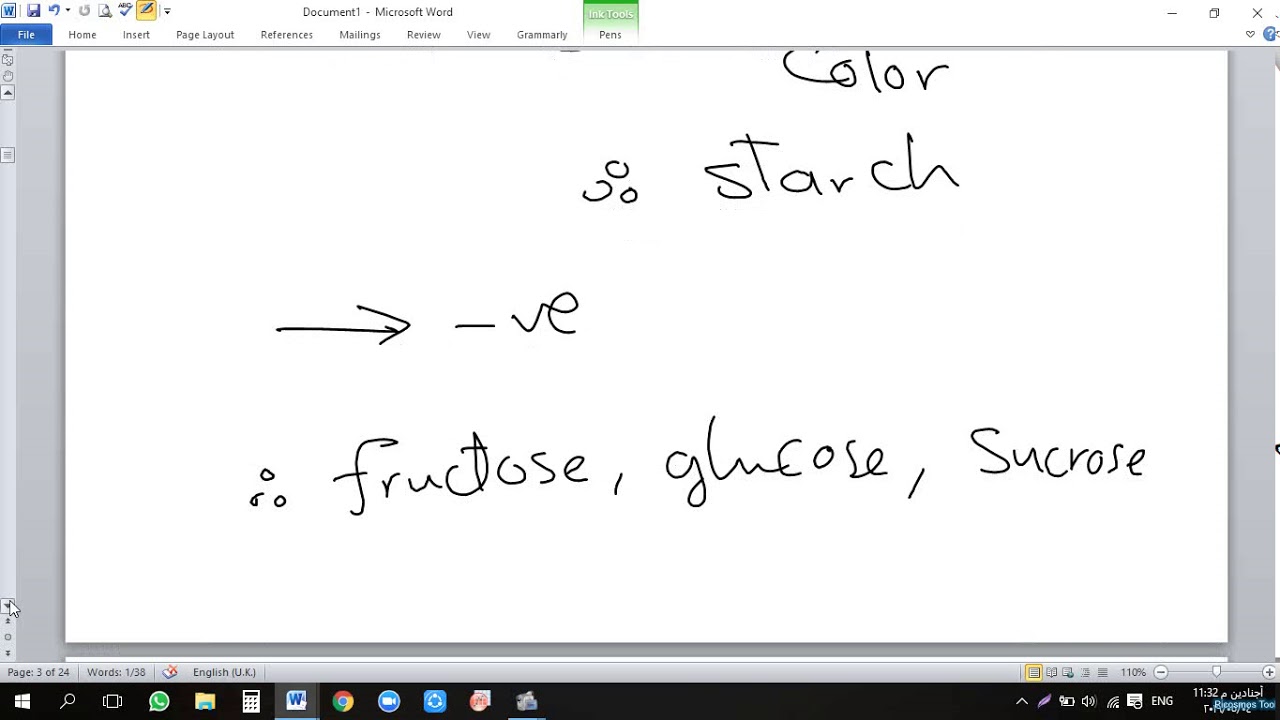 Document1 - Microsoft Word
Ink Tools
File Home Insert Page Layout References Mailings Review View Grammarly Pens
Color
∴ starch
→ -ve
∴ fructose, glucose, Sucrose
Page: 3 of 24 Words: 1/38 English (U.K.) 110%
ENG
11:32
Ricosmos Too